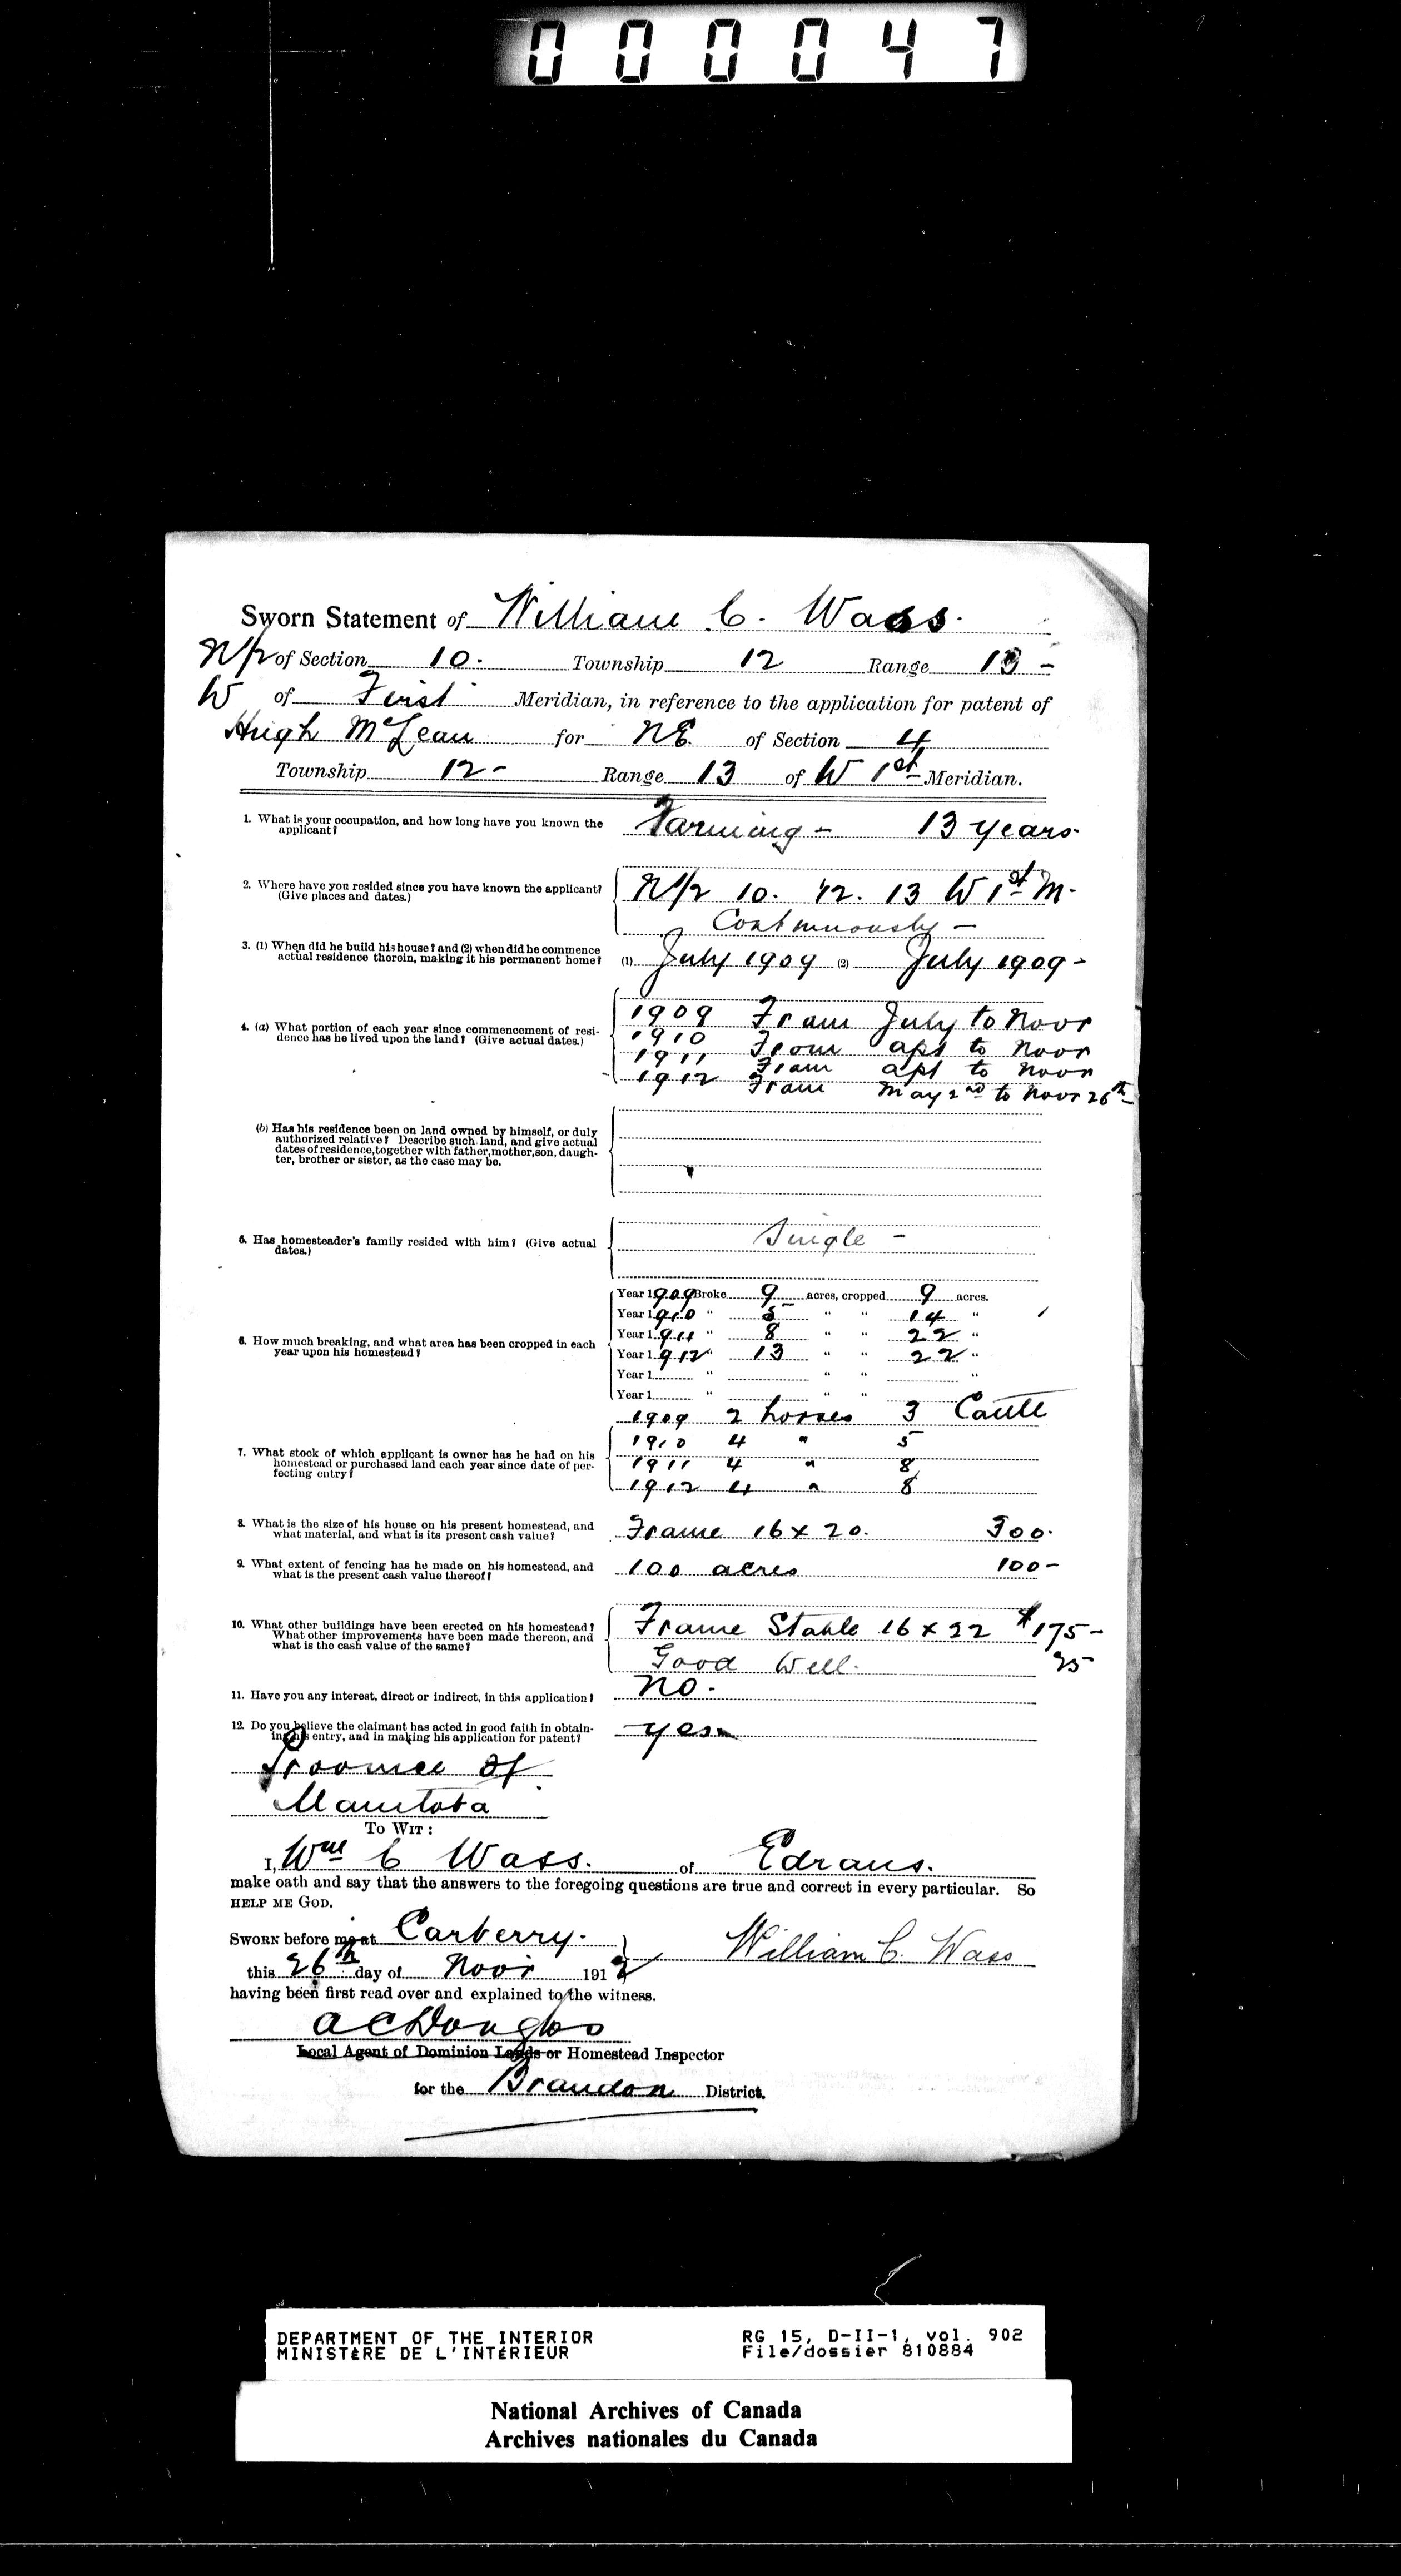 000047
Sworn Statement of William C. Wass.
N/2 of Section 10. Township 12 Range 13 -
W of First Meridian, in reference to the application for patent of
Hugh McLean for NE. of Section 4
Township 12 - Range 13 of W 1st Meridian.
1. What is your occupation, and how long have you known the applicant? Farming - 13 years.
2. Where have you resided since you have known the applicant? (Give places and dates.) N/2 10. 12. 13 W 1st M.
Continuously -
3. (1) When did he build his house? and (2) when did he commence
actual residence therein, making it his permanent home? (1) July 1909 (2) July 1909 -
4. (a) What portion of each year since commencement of resi-
dence has he lived upon the land? (Give actual dates.)
1909 From July to Novr
1910 From apl to Novr
1911 From apl to Novr
1912 From May 2nd to Novr 26th
(b) Has his residence been on land owned by himself, or duly
authorized relative? Describe such land, and give actual
dates of residence, together with father, mother, son, daugh-
ter, brother or sister, as the case may be.
5. Has homesteader's family resided with him? (Give actual
dates.) Single -
6. How much breaking, and what area has been cropped in each
year upon his homestead?
Year 1909 Broke 9 acres, cropped 9 acres.
Year 1910 " 5 " " 14 "
Year 1911 " 8 " " 22 "
Year 1912 " 13 " " 22 "
Year 1 " " " "
Year 1 " " "
7. What stock of which applicant is owner has he had on his
homestead or purchased land each year since date of per-
fecting entry?
1909 2 horses 3 Cattle
1910 4 " 5
1911 4 " 8
1912 4 " 8
8. What is the size of his house on his present homestead, and
what material, and what is its present cash value? Frame 16 x 20. 300.
9. What extent of fencing has he made on his homestead, and
what is the present cash value thereof? 100 acres 100 -
10. What other buildings have been erected on his homestead?
What other improvements have been made thereon, and
what is the cash value of the same?
Frame Stable 16 x 22 $175 -
Good Well. 25
11. Have you any interest, direct or indirect, in this application? No.
12. Do you believe the claimant has acted in good faith in obtain-
ing his entry, and in making his application for patent? yes
Province of
Manitoba
To Wit:
I, Wm C Wass. of Edrans.
make oath and say that the answers to the foregoing questions are true and correct in every particular. So
help me God.
Sworn before me at Carberry. William C. Wass
this 26th day of Novr 1912
having been first read over and explained to the witness.
A C Douglas
Local Agent of Dominion Lands or Homestead Inspector
for the Brandon District.
DEPARTMENT OF THE INTERIOR RG 15, D-II-1, vol. 902
MINISTÈRE DE L'INTÉRIEUR File/dossier 810884
National Archives of Canada
Archives nationales du Canada